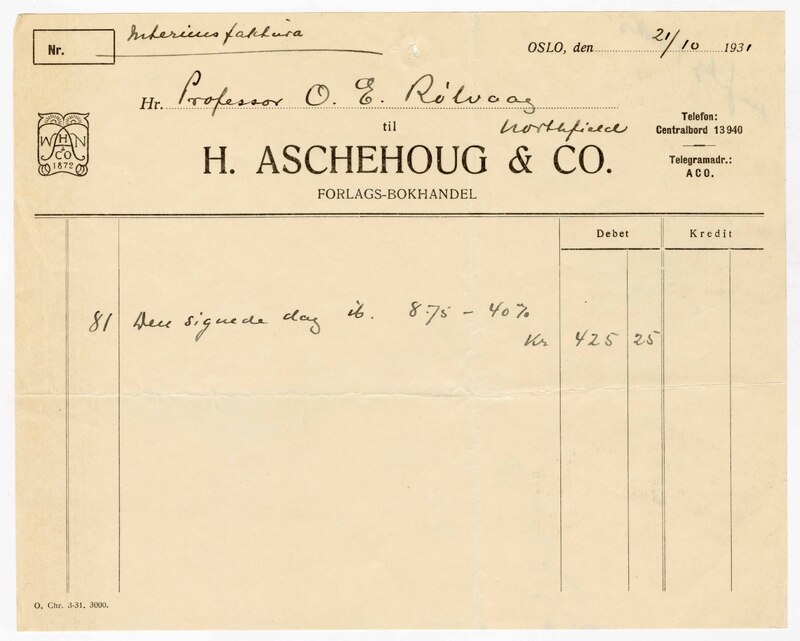 Interims faktura
Nr.
OSLO, den 21/10 1931
Hr. Professor O. E. Rølvaag
Northfield
til
H. ASCHEHOUG & CO.
FORLAGS-BOKHANDEL
W H N
& CO
1872
Telefon:
Centralbord 13 940
Telegramadr.:
ACO.
Debet Kredit
81 Den signede dag ib. 8.75 - 40%
Kr 425 25
O. Chr. 3-31. 3000.